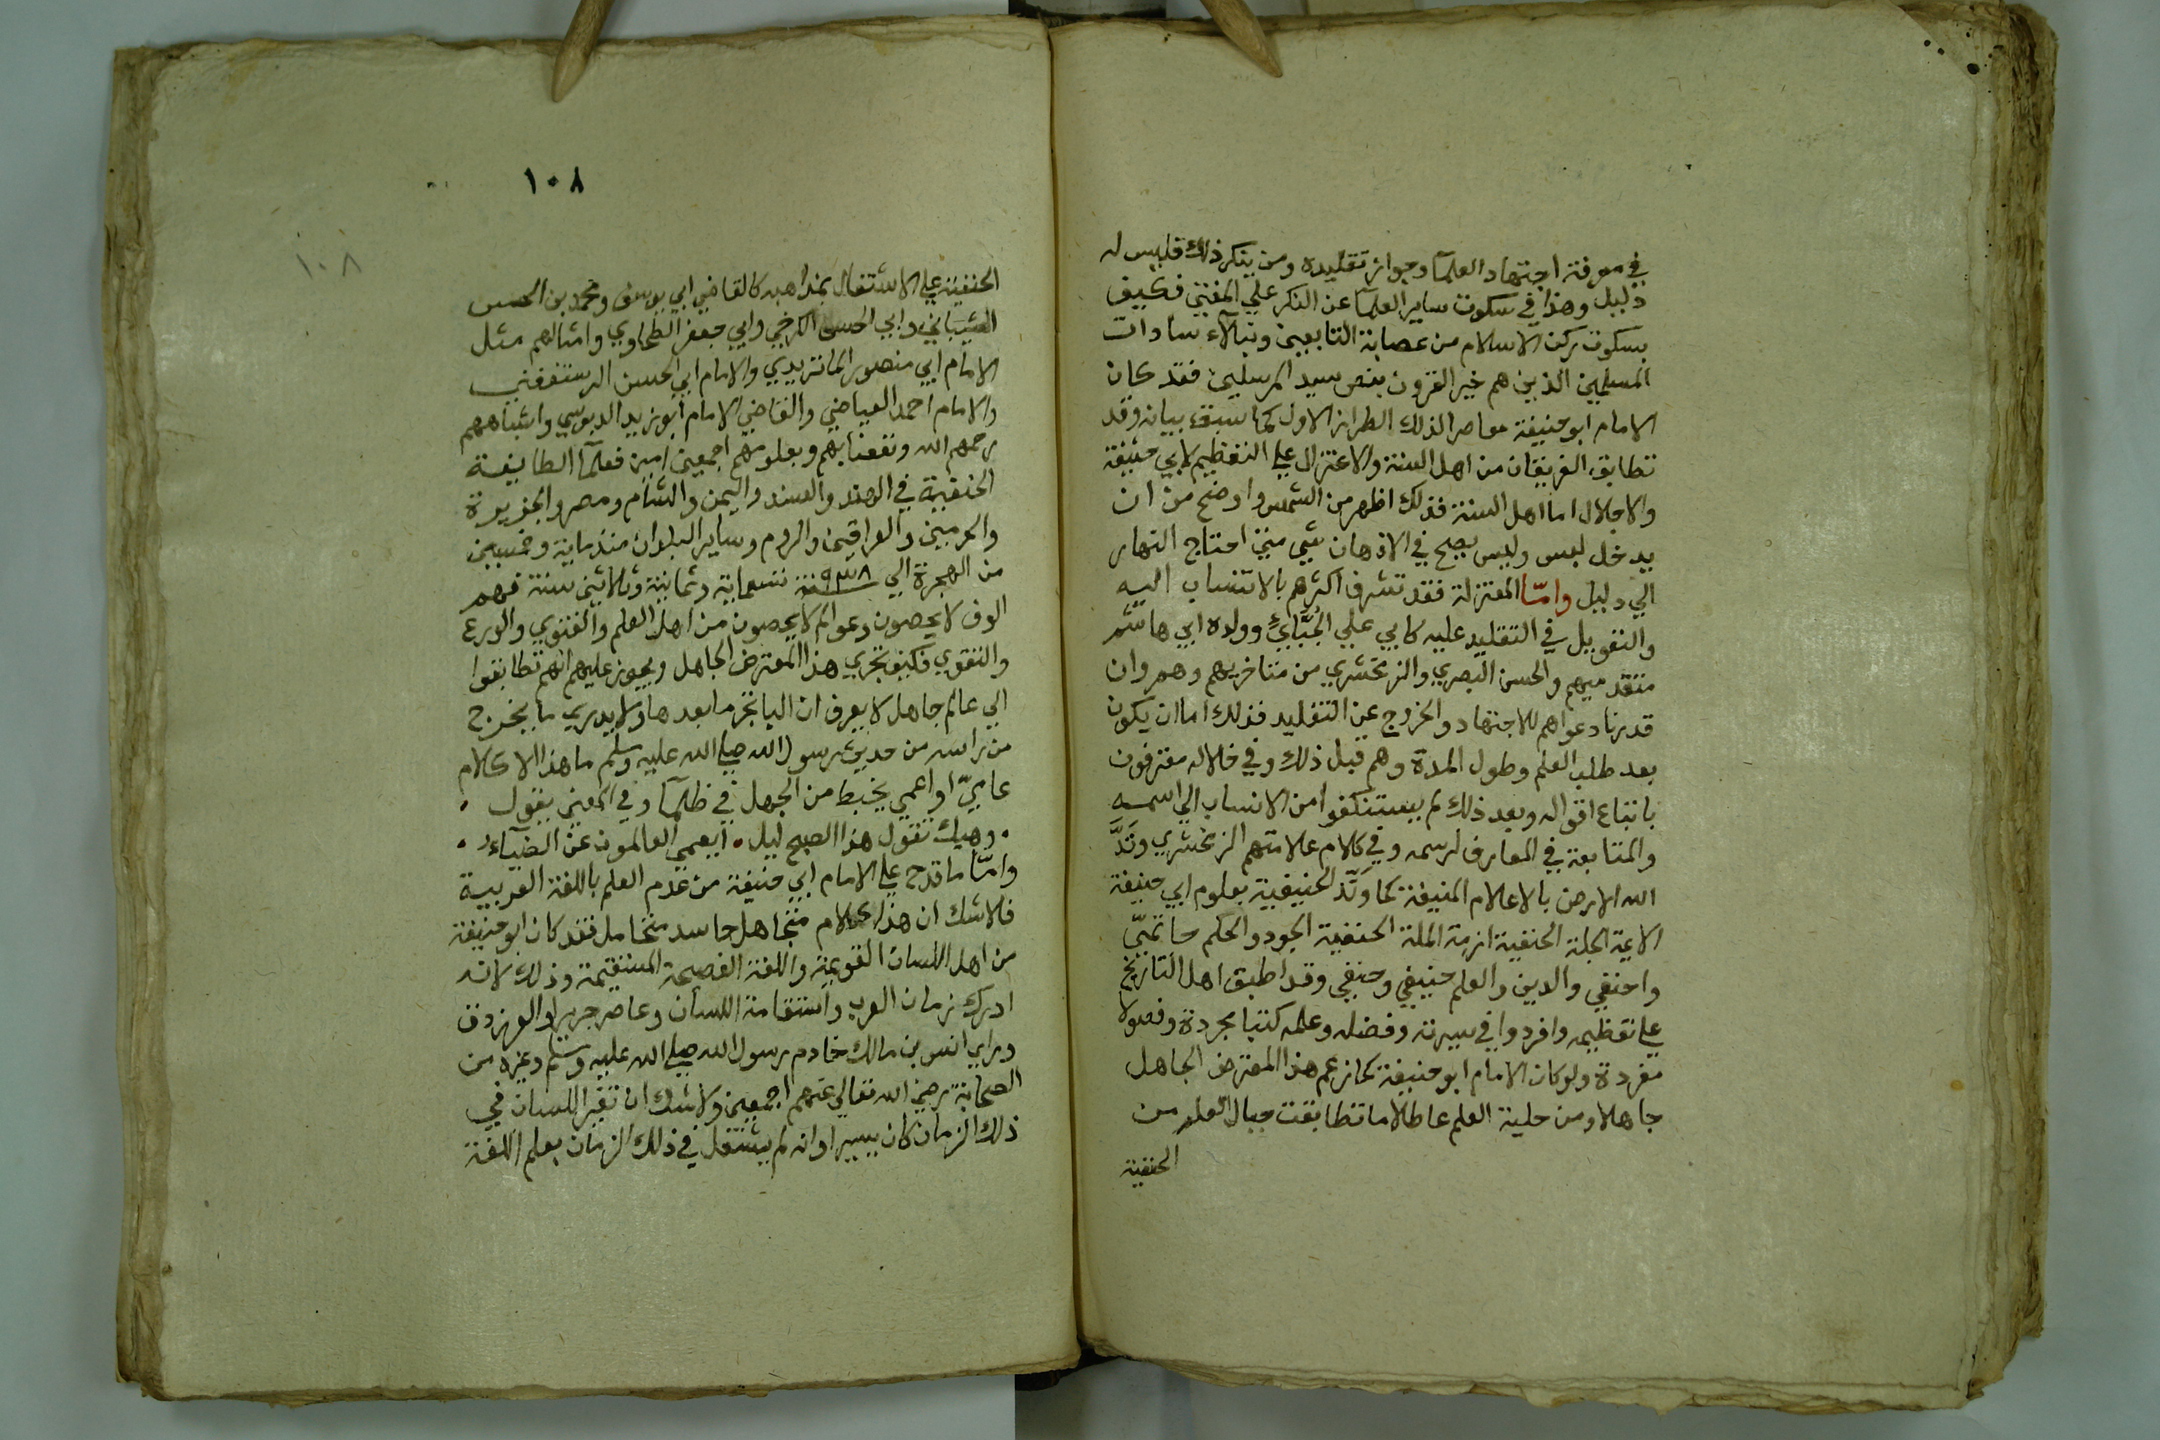 في معرفة اجتهاد العلمآ وجواز تقليده ومن ينكر ذلك فليس له
دليل وهذا في سكوت ساير العلمآ عن النكر علي المفتي فكيف
بسكوت تركن الاسلام من عصابة التابعين ونبلآء سادات
المسلمين الذين هم خير القرون بنص سيد المرسلين فقد كان
الامام ابو حنيفة معاصر الذلك الطراز الاول كما سبق بيانه وقد
تطابق الفريقان من اهل السنة والاعتزال علي التعظيم لابي حنيفة
والاجلال اما اهل السنة فذلك اظهر من الشمس واوضح من ان
يدخل لبس وليس يصح في الاذهان شي متي احتاج النهار
الي دليل وامّا المعتزلة فقد تشرف اكثرهم بالانتساب اليه
والتعويل في التقليد عليه كابي علي الجبّائي وولده ابي هاشم
متقدميهم والحسن البصري والزمخشري من متاخريهم وهم وان
قدرنا دعواهم للاجتهاد والخروج عن التقليد فذلك اما ان يكون
بعد طلب العلم وطول المدة وهم قبل ذلك وفي خلاله معترفون
باتباع اقواله وبعد ذلك لم يستنكفوا من الانساب الي اسمه
والمتابعة في المعارف لرسمه وفي كلام علامتهم الزمخشري وتَدَّ
الله الارض بالاعلام المنيفة كما وَتَّد الحنيفية بعلوم ابي حنيفة
الايمة الجلة الحنفية ازمة الملة الحنفية الجود والحلم حاتميّ
واحنفي والدين والعلم حنيفي وحنفي وقد اطبق اهل التاريخ
علي تعظيمه وافردوا في سيرته وفضله وعلمه كتبا مجردة وفصولا
مفردة ولو كان الامام ابو حنيفة كما زعم هذا المعترض الجاهل
جاهلا ومن حلية العلم عاطلا ما تطابقت جبال العلم من
الحنفية
١٠٨
١٠٨
الحنفية علي الاشتغال بمذاهبه كالقاضي ابي يوسف ومحمد بن الحسن
الشيباني وابي الحسن الكرخي وابي جعفر الطحاوي وامثالهم مثل
الامام ابي منصور الماتريدي والامام ابي الحسن الرستغفني
والامام احمد العياضي والقاضي الامام ابو زيد الدبوسي واشباههم
رحمهم الله ونفعنا بهم وبعلومهم اجمعين امين فعلمآ الطايفة
الحنفية في الهند والسند واليمن والشام ومصر والجزيرة
والحرمين والعراقين والروم وساير البلدان منذ ماية وخمسين
من الهجرة الي ٩٣٨ سنة تسعماية وثمانية وثلاثين سنة فهم
الوف لا يحصون وعوالم لا يحصون من اهل العلم والفتوي والورع
والتقوي فكيف تجري هذا المعترض الجاهل ويجوز عليهم انهم تطابقوا
الي عالم جاهل لا يعرف ان البا تجر ما بعدها ولا يدري ما يخرج
من راسه من حديث رسول الله صلي الله عليه وسلم ما هذا الا كلام
عاميّ او اعمي يخبط من الجهل في ظلمآ وفي المعني يقول .
. وهبك تقول هذا الصبح ليل . ايعمي العالمون عن الضيآء .
وامّا ما قدح علي الامام ابي حنيفة من عدم العلم باللغة العربية
فلا شك ان هذا كلام متجاهل حاسد متحامل فقد كان ابو حنيفة
من اهل اللسان القويمة واللغة الفصيحة المستقيمة وذلك لانه
ادرك زمان العرب واستقامة اللسان وعاصر جرير او الفرزدق
وراي انس بن مالك خادم رسول الله صلي الله عليه وسلم وغيره من
الصحابة رضي الله تعالي عنهم اجمعين ولا شك ان تغير اللسان في
ذلك الزمان كان يسيرا وانه لم يشتغل في ذلك الزمان بعلم اللغة